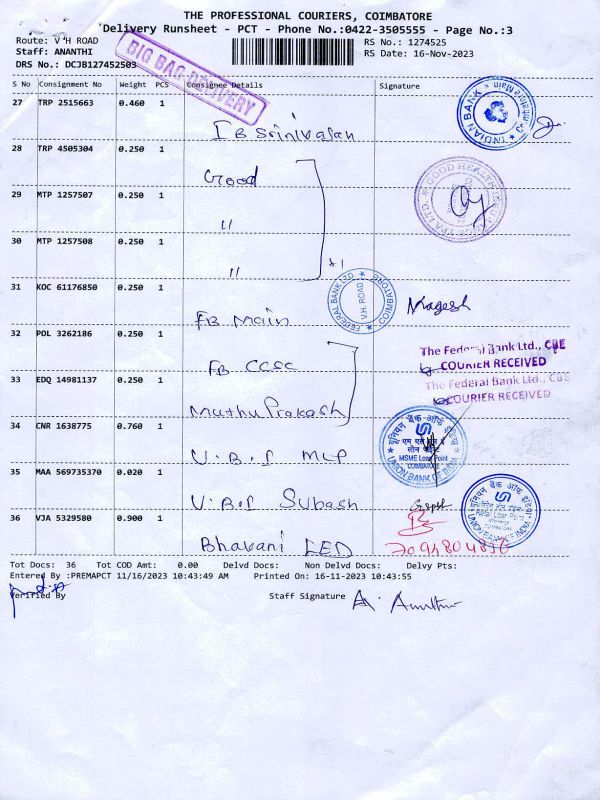 THE PROFESSIONAL COURIERS, COIMBATORE
Delivery Runsheet - PCT - Phone No.:0422-3505555 - Page No.:3
Route: V H ROAD
RS No.: 1274525
Staff: ANANTHI
RS Date: 16-Nov-2023
DRS No.: DCJB127452503
BIG BAG DELIVERY
S No Consignment No Weight PCS Consignee Details Signature
27 TRP 2515663 0.460 1
IB Srinivasan
INDIAN BANK
28 TRP 4505304 0.250 1
Good
GOOD HEALTH TPA LTD.
29 MTP 1257507 0.250 1
"
30 MTP 1257508 0.250 1
"
31 KOC 61176850 0.250 1
FB Main
FEDERAL BANK LTD. V.H. ROAD COIMBATORE
Nagesh
32 POL 3262186 0.250 1
FB CCSC
The Federal Bank Ltd., CBE
COURIER RECEIVED
33 EDQ 14981137 0.250 1
Muthu Prakash
The Federal Bank Ltd., CBE
COURIER RECEIVED
34 CNR 1638775 0.760 1
U.B.I MLP
यूनियन बैंक ऑफ इंडिया
MSME Loan Point
COIMBATORE
UNION BANK OF INDIA
35 MAA 569735370 0.020 1
U.B.I Subash
यूनियन बैंक ऑफ इंडिया
UNION BANK OF INDIA
36 VJA 5329580 0.900 1
Bhavani LED
Tot Docs: 36 Tot COD Amt: 0.00 Delvd Docs: Non Delvd Docs: Delvy Pts:
Entered By :PREMAPCT 11/16/2023 10:43:49 AM Printed On: 16-11-2023 10:43:55
Verified By
Staff Signature A. Ananthi